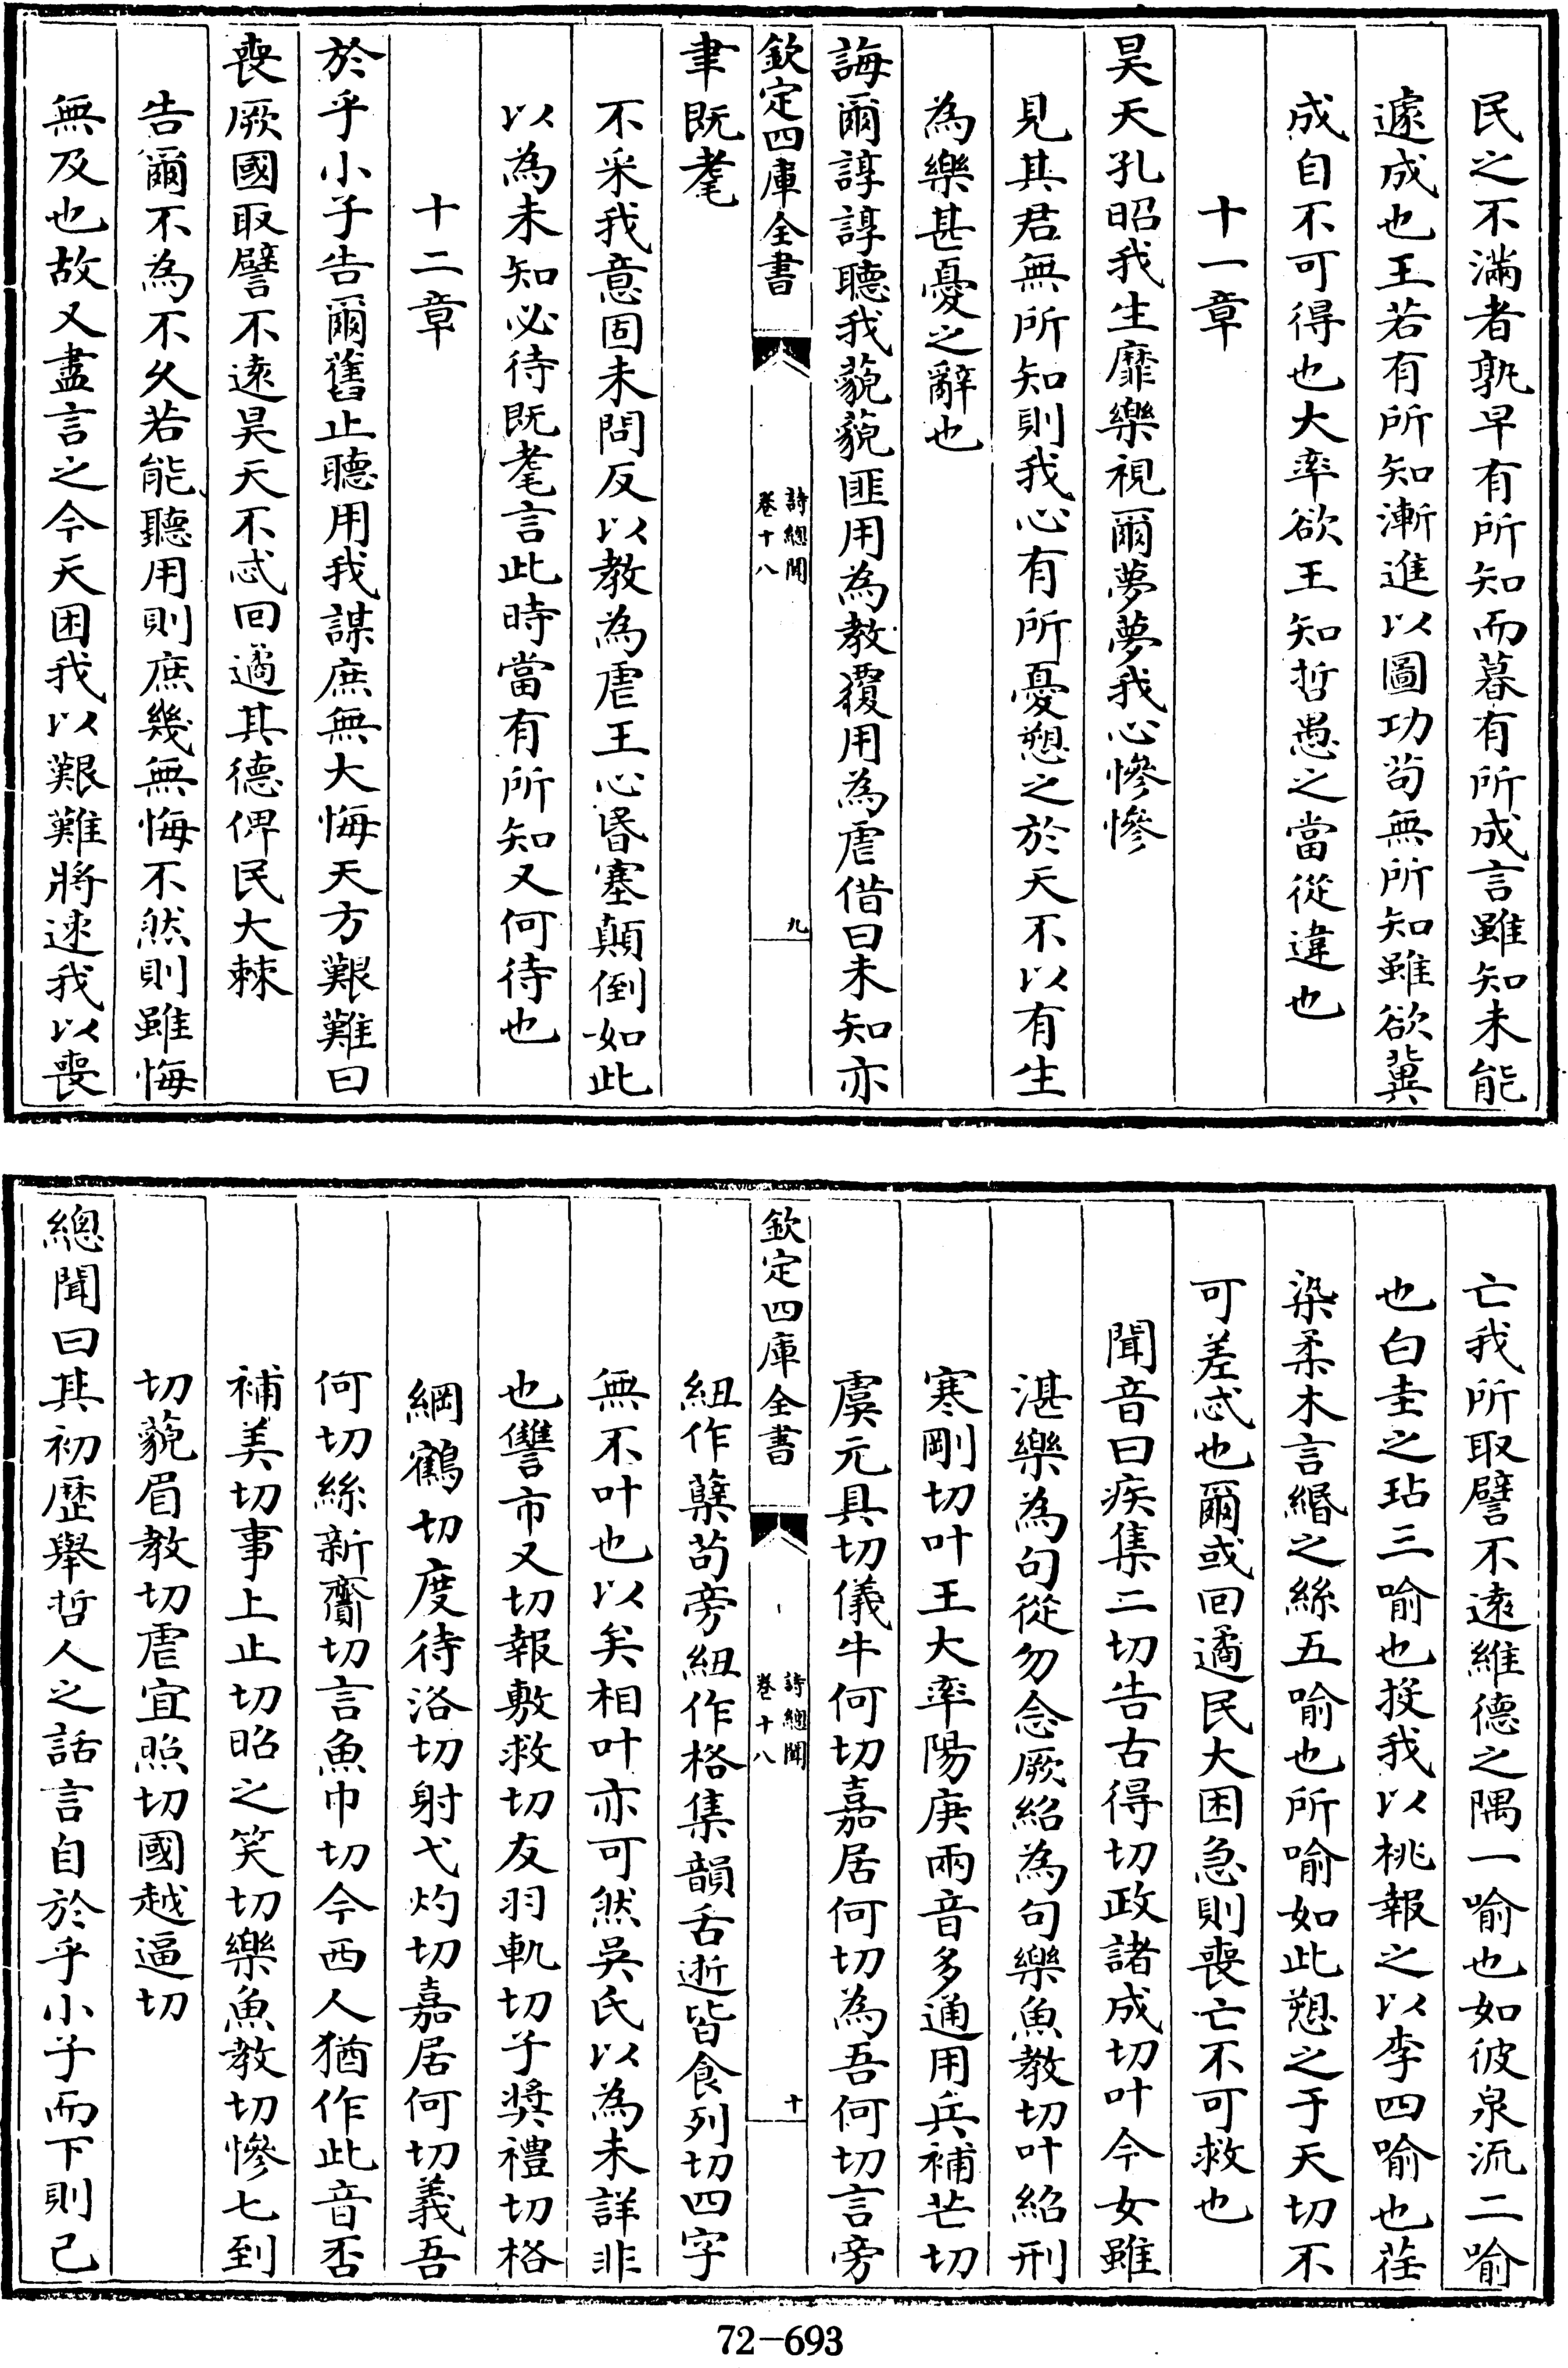 民之不滿者孰早有所知而暮有所成言雖知未能
遽成也王若有所知漸進以圖功茍無所知雖欲冀
成自不可得也大率欲王知哲愚之當從違也
十一章
昊天孔昭我生靡樂視爾夢夢我心慘慘
見其君無所知則我心有所憂愬之於天不以有生
為樂甚憂之辭也
誨爾諄諄聽我藐藐匪用為教覆用為虐借曰未知亦
欽定四庫全書
詩總聞
卷十八
九
聿既耄
不采我意固未問反以教為虐王心昬塞顛倒如此
以為未知必待既耄言此時當有所知又何待也
十二章
於乎小子告爾舊止聽用我謀庶無大悔天方艱難曰
喪厥國取譬不遠昊天不忒回遹其德俾民大棘
告爾不為不久若能聽用則庶幾無悔不然則雖悔
無及也故又盡言之今天困我以艱難將速我以喪
亡我所取譬不遠維德之隅一喻也如彼泉流二喻
也白圭之玷三喻也投我以桃報之以李四喻也荏
染柔木言緡之絲五喻也所喻如此愬之于天切不
可差忒也爾或回遹民大困急則喪亡不可救也
聞音曰疾集二切告古得切政諸成切叶今女雖
湛樂為句從勿念厥紹為句樂魚教切叶紹刑
寒剛切叶王大率陽庚兩音多通用兵補芒切
虞元具切儀牛何切嘉居何切為吾何切言旁
欽定四庫全書
詩總聞
卷十八
十
紐作蘖茍旁紐作格集韻舌逝皆食列切四字
無不叶也以矣相叶亦可然吳氏以為未詳非
也讐市又切報敷救切友羽軌切子奬禮切格
綱鶴切度待洛切射弋灼切嘉居何切義吾
何切絲新齎切言魚巾切今西人猶作此音否
補美切事上止切昭之笑切樂魚教切慘七到
切藐眉教切虐宜照切國越逼切
總聞曰其初歴舉哲人之話言自於乎小子而下則己
72-693